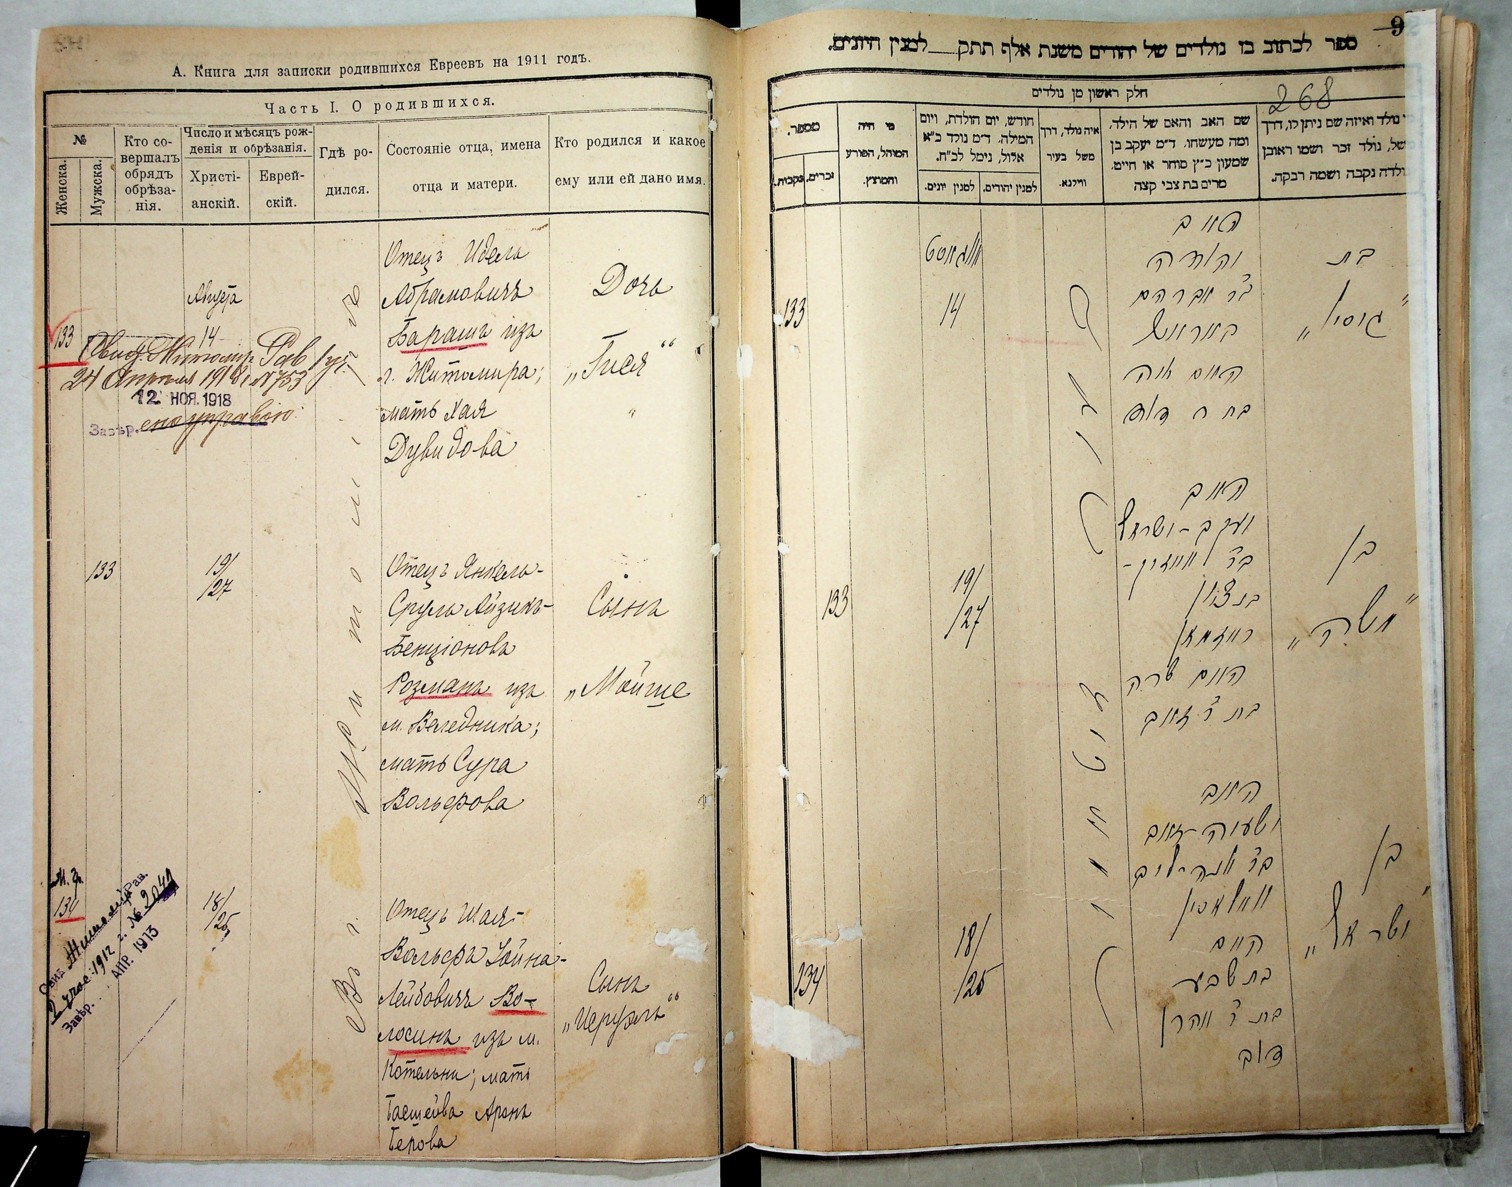 А. Книга для записки родившихся Евреевъ на 1911 годъ.
Часть I. О родившихся.
№
Женска.
Мужска.
Кто со-
вершалъ
обрядъ
обрѣза-
нія.
Число и мѣсяцъ рож-
денія и обрѣзанія.
Христі-
анскій.
Еврей-
скій.
Гдѣ ро-
дился.
Состояніе отца, имена
отца и матери.
Кто родился и какое
ему или ей дано имя.
133
Августа
14
Отецъ Идель
Абрамовичъ
Барашъ изъ
г. Житомира;
мать Хая
Дувидова
Дочь
„Гися“
24 Апреля 1918 г. № 753
12 НОЯ. 1918
Завѣр.
133
19/
/27
Отецъ Янкель-
Сруль Айзикъ-
Бенціоновъ
Розманъ изъ
м. Веледника;
мать Сура
Вольфова
Сынъ
„Мойше
134
18/
/25
Отецъ Шая-
Вольфъ Хойна-
Лейбовичъ Во-
лосинъ изъ м.
Котельни; мать
Басшейва Аронъ
Берова
Сынъ
„Исруэль“
Въ г. Житомирѣ
1912 г. № 2040
АПР. 1913
Завѣр.
9
ספר לכתוב בו נולדים של יהודים משנת אלף תתק למנין היונים.
268
חלק ראשון מן נולדים
מספר.
נקבות.
זכרים.
מי היה
המוהל, הפורע
והמוצץ.
חודש, יום הולדת, ויום
המילה. ד״מ נולד כ״א
אלול, נימל לכ״ח.
למנין יונים.
למנין יהודים.
איה נולד, דרך
משל בעיר
ווילנא.
שם האב והאם של הילד.
ומה מעשהו. ד״מ יעקב בן
שמעון כ״ץ סוחר או חיים.
מרים בת צבי קצה
נולד ואיזה שם ניתן לו, דרך
של, נולד זכר ושמו ראובן
ולדה נקבה ושמה רבקה.
133
אוגוסט
14
האב
יהודה
בר אברהם
באראש
האם חיה
בת ר דוד
בת
„גיסיל“
133
19/
/27
האב
יעקב-ישראל
בר אייזיק-
בנציון
רויזמאן
האם שרה
בת ר זאב
בן
„משה“
134
18/
/25
האב
ישעיה-זאב
וואלאסין
האם
בת שבע
בת ר אהרן
דוב
בן
„ישראל“